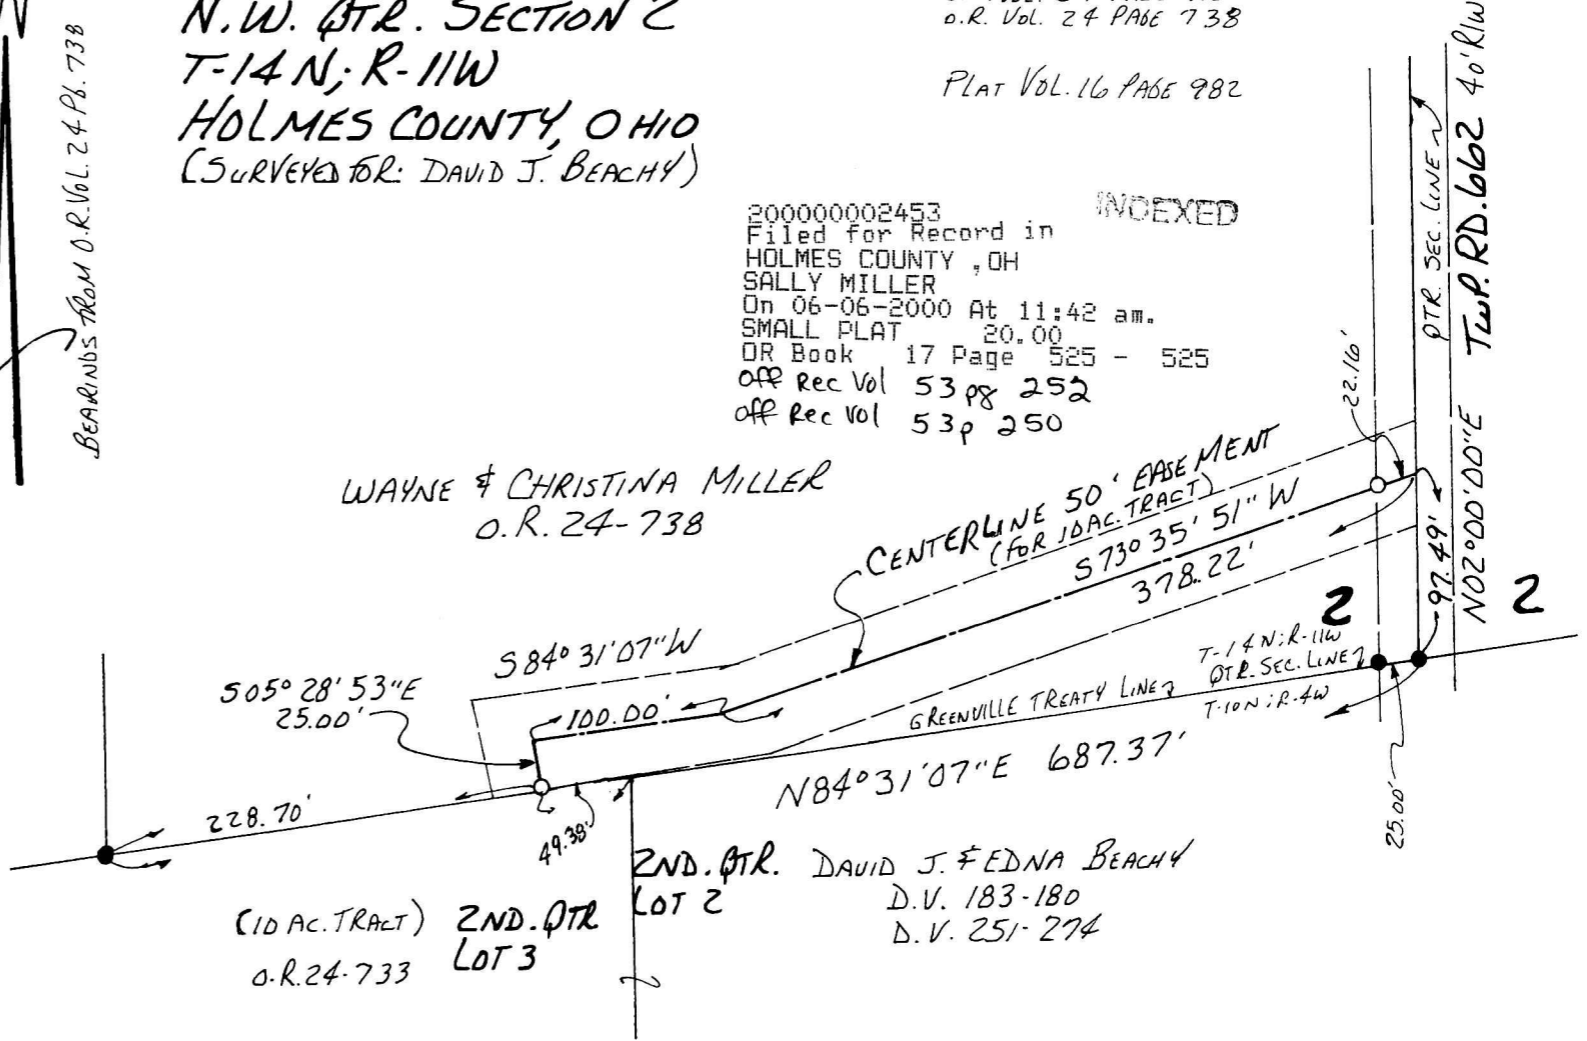 N.W. QTR. SECTION 2
T-14 N; R-11W
HOLMES COUNTY, OHIO
(SURVEYED FOR: DAVID J. BEACHY)
BEARINGS FROM O.R. VOL. 24 PG. 738
O.R. VOL. 24 PAGE 738
PLAT VOL. 16 PAGE 982
200000002453
Filed for Record in
HOLMES COUNTY ,OH
SALLY MILLER
On 06-06-2000 At 11:42 am.
SMALL PLAT 20.00
OR Book 17 Page 525 - 525
off Rec Vol 53 pg 252
off Rec Vol 53p 250
INDEXED
QTR. SEC. LINE
TWP. RD. 662 40' R/W
N02°00'00"E
22.16'
97.49'
WAYNE & CHRISTINA MILLER
O.R. 24-738
CENTERLINE 50' EASEMENT
(FOR 10AC. TRACT)
S73° 35' 51" W
378.22'
2
2
T-14N; R-11W
QTR. SEC. LINE
T-10N; R-4W
GREENVILLE TREATY LINE
N84°31'07"E 687.37'
25.00'
S84°31'07"W
S05° 28' 53"E
25.00'
100.00'
228.70'
49.38'
2ND. QTR.
LOT 2
DAVID J. & EDNA BEACHY
D.V. 183-180
D.V. 251-274
(10 AC. TRACT)
O.R. 24-733
2ND. QTR
LOT 3